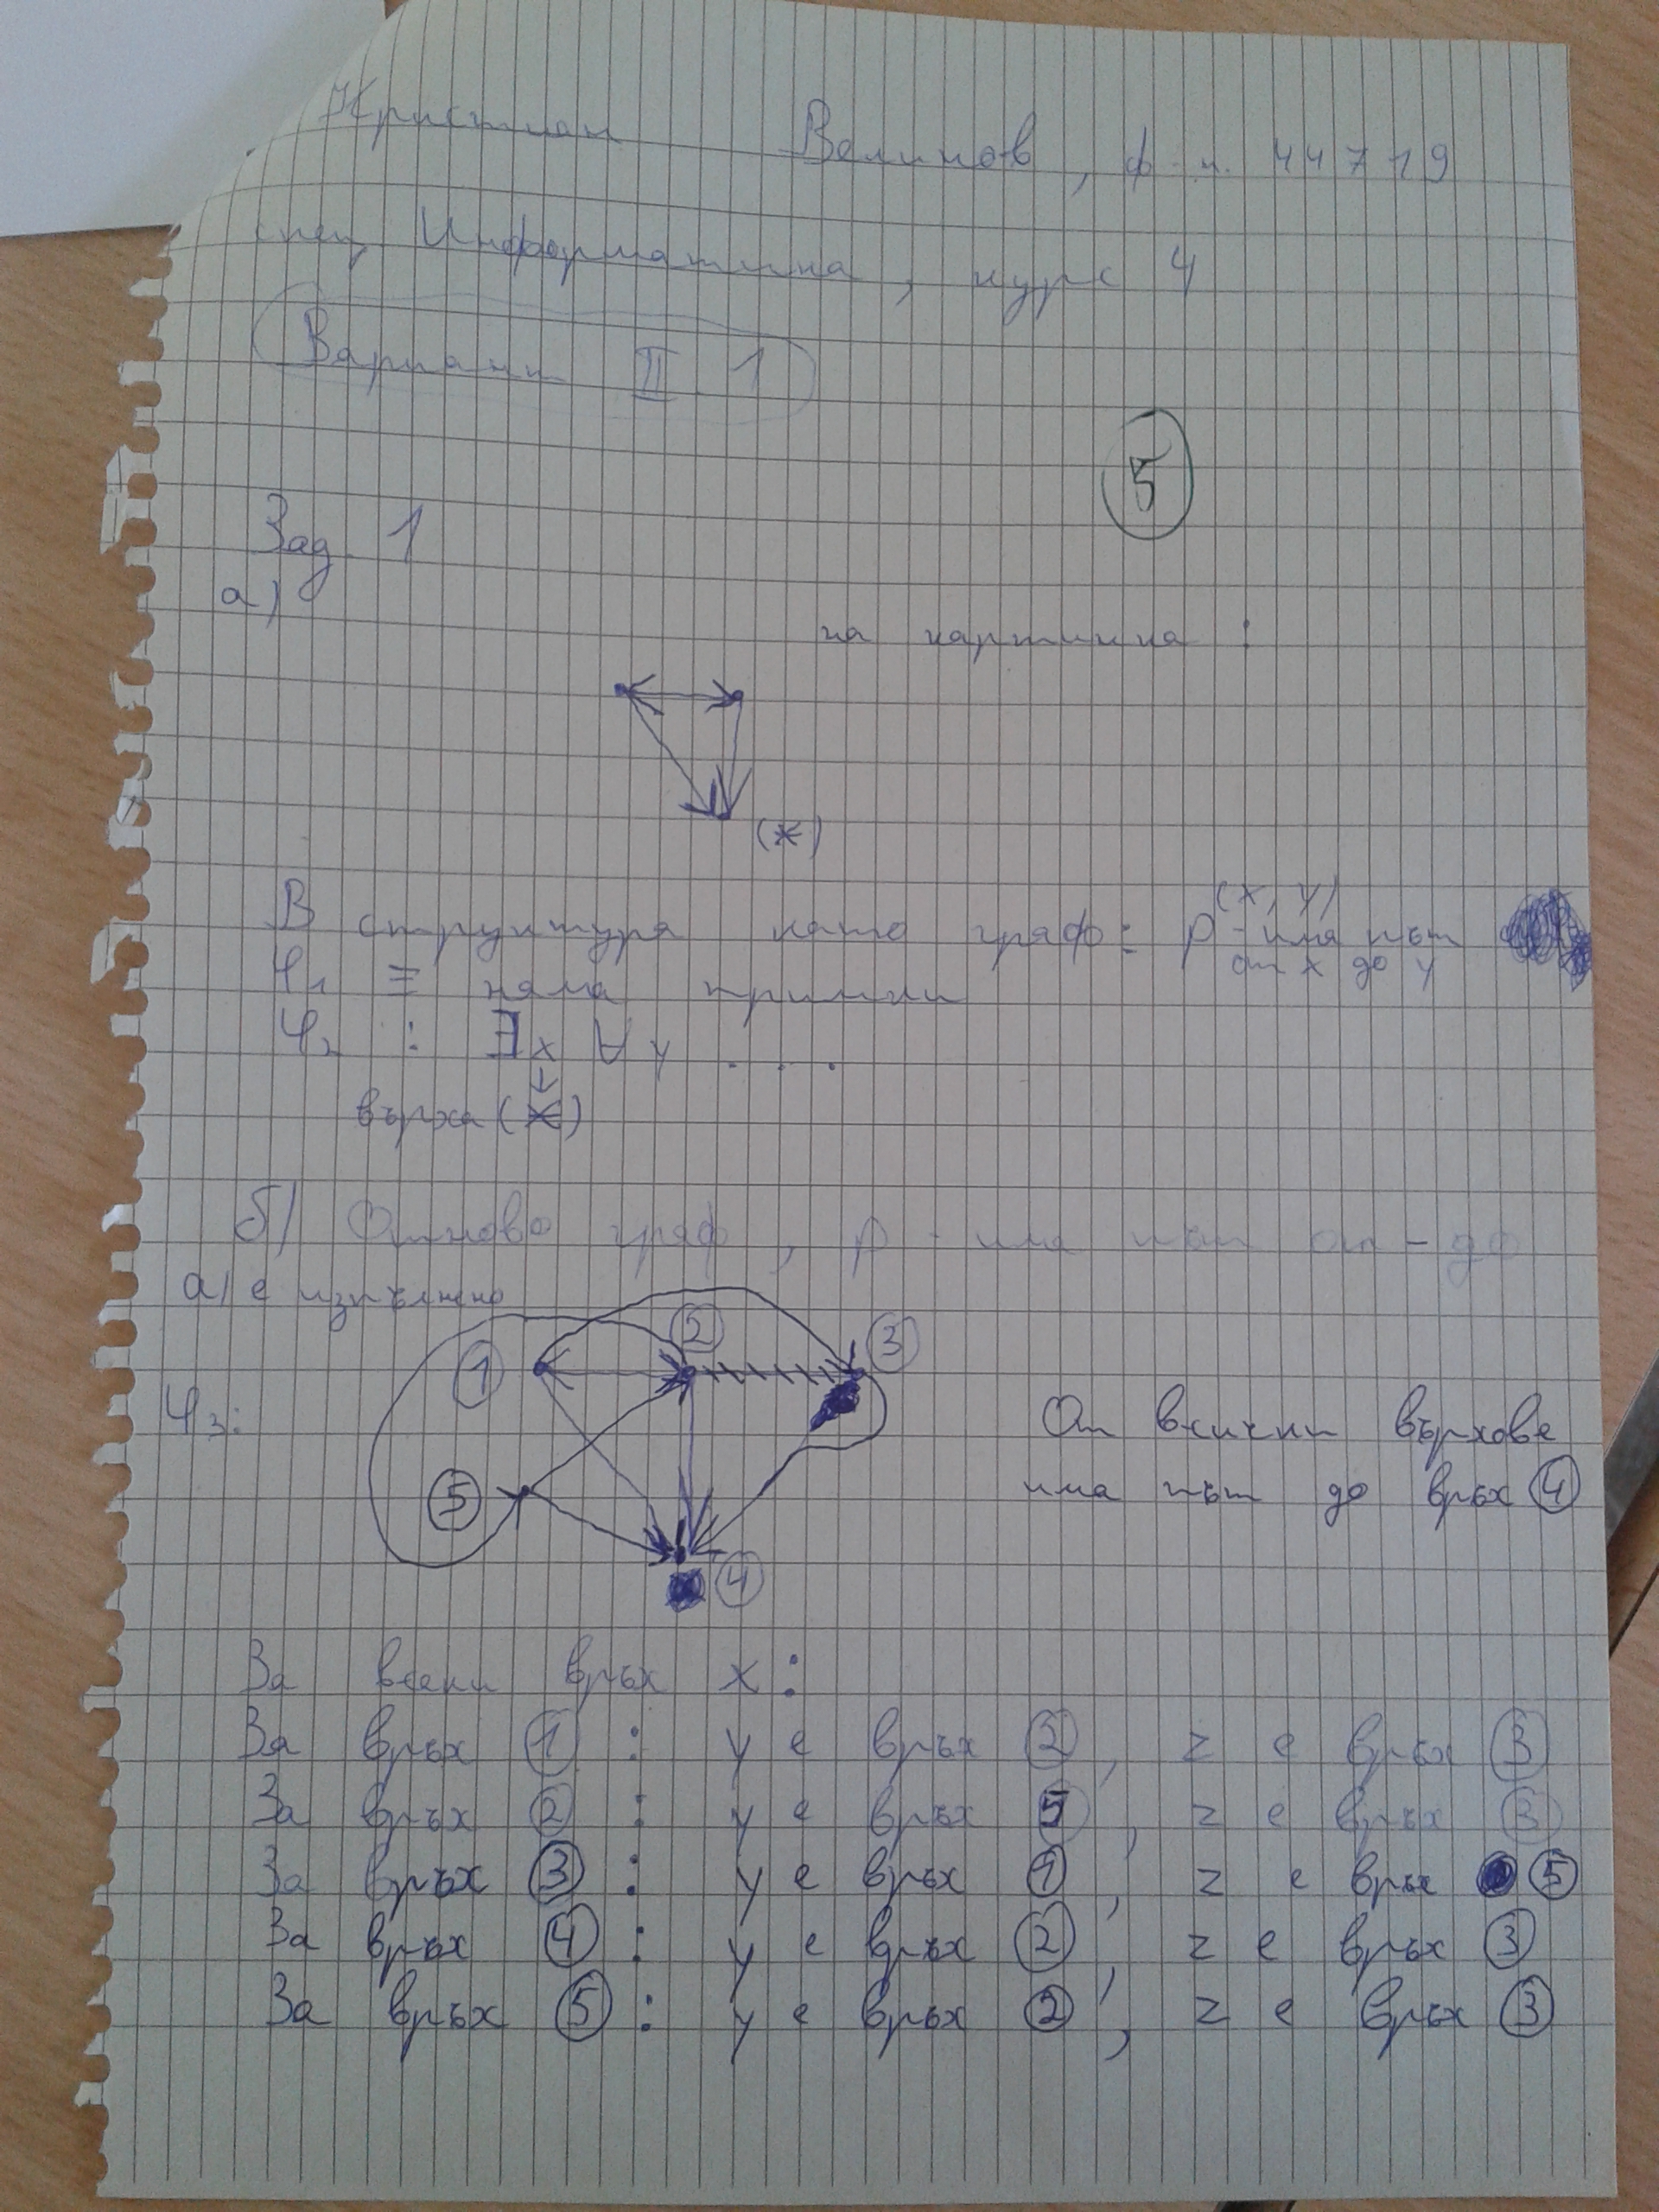 Кристиан Велинов, ф.н. 44719
спец. Информатика, курс 4
Вариант II.1
5
Зад. 1
а)
на картинка:
(*)
(x, y)
В структура като граф: p - има път
от x до y
φ₁ ≡ няма примки
φ₂ : ∃x ∀y . . .
върха (*)
б) Отново граф, p - има път от - до
а) е изпълнено
② ③
①
φ₃: От всички върхове
⑤ има път до връх ④
④
За всеки връх x:
За връх ①: y е връх ②, z е връх ③
За връх ②: y е връх ⑤, z е връх ③
За връх ③: y е връх ①, z е връх ⑤
За връх ④: y е връх ②, z е връх ③
За връх ⑤: y е връх ②, z е връх ③